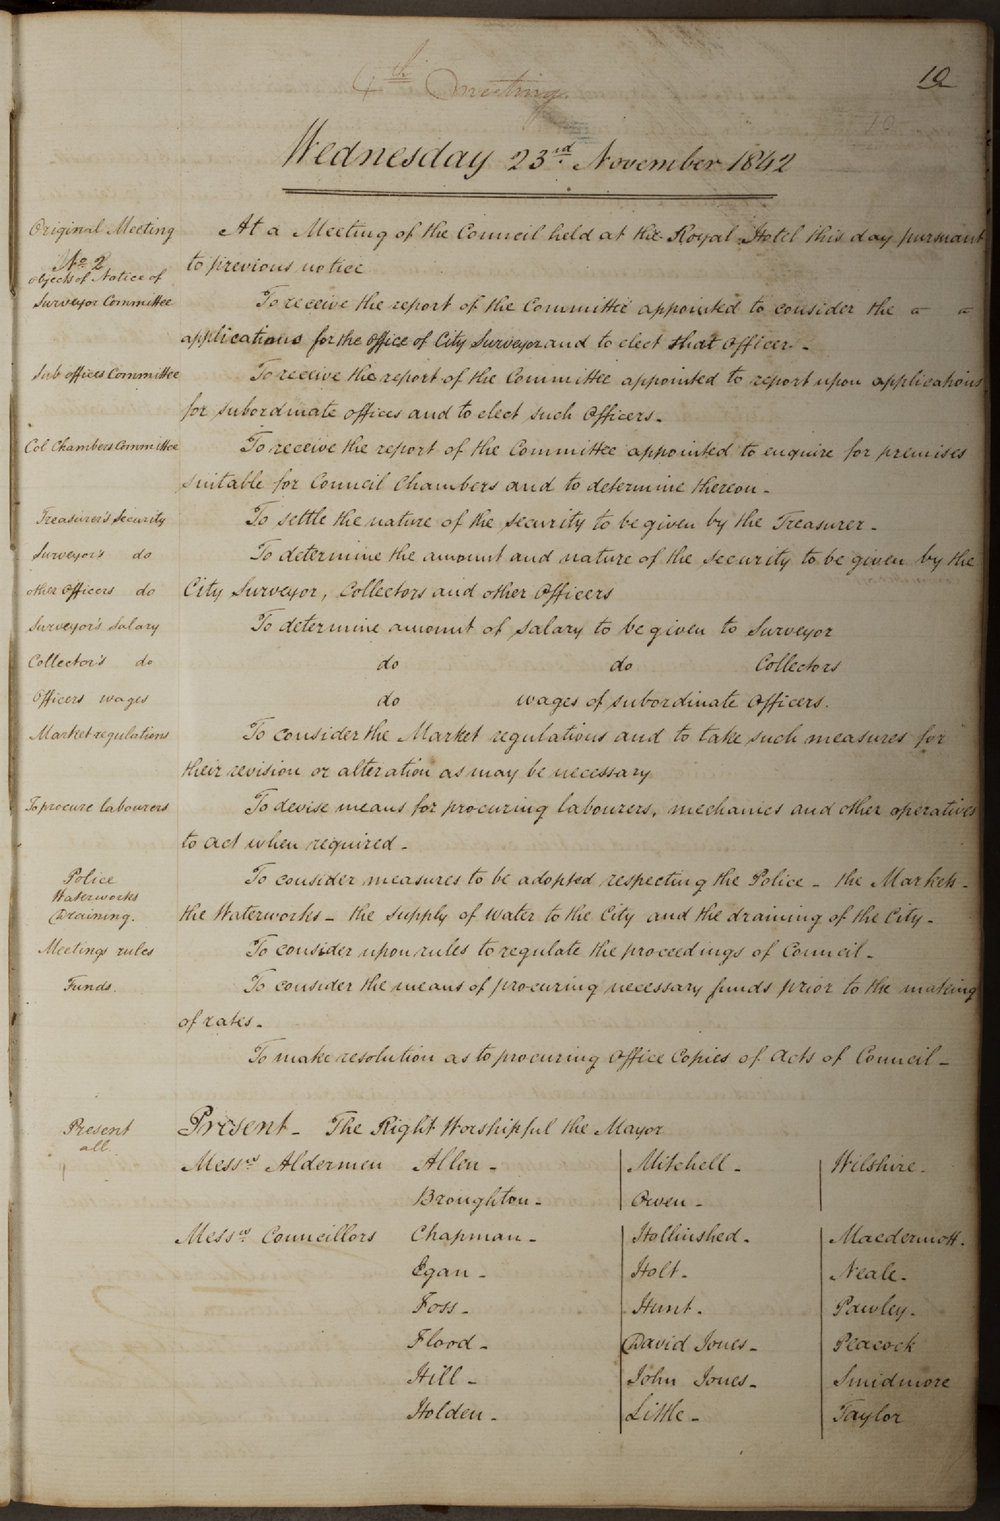 4th meeting.
10
Wednesday 23rd. November 1842
Original Meeting
No 2
objects of Notice of
At a Meeting of the Council held at the Royal Hotel this day pursuant
to previous notice
Surveyor Committee
To receive the report of the Committee appointed to consider the
applications for the office of City Surveyor and to elect that Officer. -
Sub offices Committee
To receive the report of the Committee appointed to report upon applications
for subordinate offices and to elect such Officers. -
Col Chambers Committee
To receive the report of the Committee appointed to enquire for premises
suitable for Council Chambers and to determine thereon. -
Treasurer's Security
To settle the nature of the security to be given by the Treasurer. -
Surveyor's do
To determine the amount and nature of the security to be given by the
other Officers do
City Surveyor, Collectors and other Officers
Surveyor's Salary
To determine amount of salary to be given to Surveyor
Collector's do
do do Collectors
Officers wages
do wages of subordinate Officers.
Market regulations
To consider the Market regulations and to take such measures for
their revision or alteration as may be necessary
To procure labourers
To devise means for procuring labourers, mechanics and other operatives
to act when required. -
Police
Waterworks
Draining.
To consider measures to be adopted respecting the Police - the Markets -
the Waterworks - the supply of water to the City and the draining of the City. -
Meetings rules
To consider upon rules to regulate the proceedings of Council. -
Funds.
To consider the means of procuring necessary funds prior to the making
of rates. -
To make resolution as to procuring Office Copies of Acts of Council -
Present
all.
Present - The Right Worshipful the Mayor
Messrs Aldermen Allen - Mitchell - Wilshire -
Broughton - Owen -
Messrs Councillors Chapman - Hollinshed - Macdermott -
Egan - Holt - Neale -
Foss - Hunt - Pawley -
Flood - David Jones - Peacock
Hill - John Jones - Smidmore
Holden - Little - Taylor